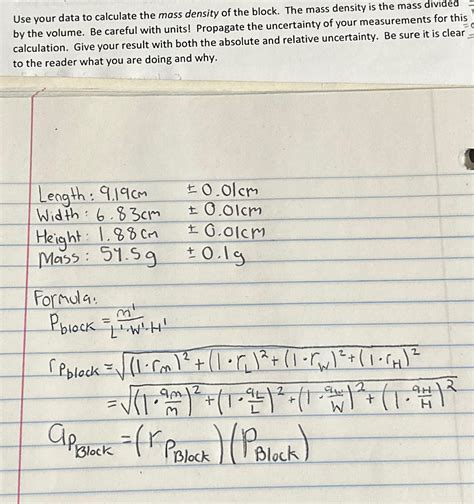 Use your data to calculate the mass density of the block. The mass density is the mass divided
by the volume. Be careful with units! Propagate the uncertainty of your measurements for this
calculation. Give your result with both the absolute and relative uncertainty. Be sure it is clear
to the reader what you are doing and why.
Length: 9.19cm ± 0.01cm
Width: 6.83cm ± 0.01cm
Height: 1.88cm ± 0.01cm
Mass: 54.5g ± 0.1g
Formula:
P_block = m¹/(L¹·W¹·H¹)
r_Pblock = √((1·r_m)² + (1·r_L)² + (1·r_W)² + (1·r_H)²)
= √((1·a_m/m)² + (1·a_L/L)² + (1·a_W/W)² + (1·a_H/H)²)
a_PBlock = (r_PBlock)(P_Block)